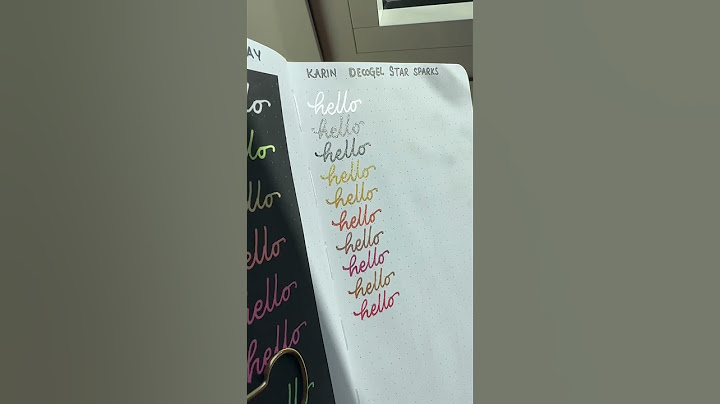 AY
lo
lo
llo
ello
hello
hello
llo
KARIN DECOGEL STAR SPARKS
hello
hello
hello
hello
hello
hello
hello
hello
hello
hello